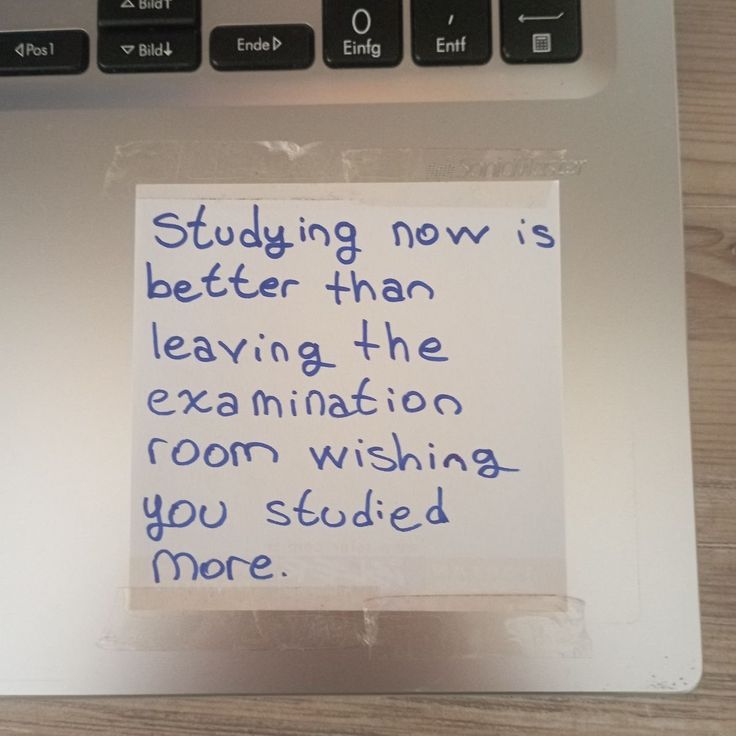 Bild↑
Pos1
Bild↓
Ende
0
Einfg
,
Entf
SonicMaster
Studying now is
better than
leaving the
examination
room wishing
you studied
more.